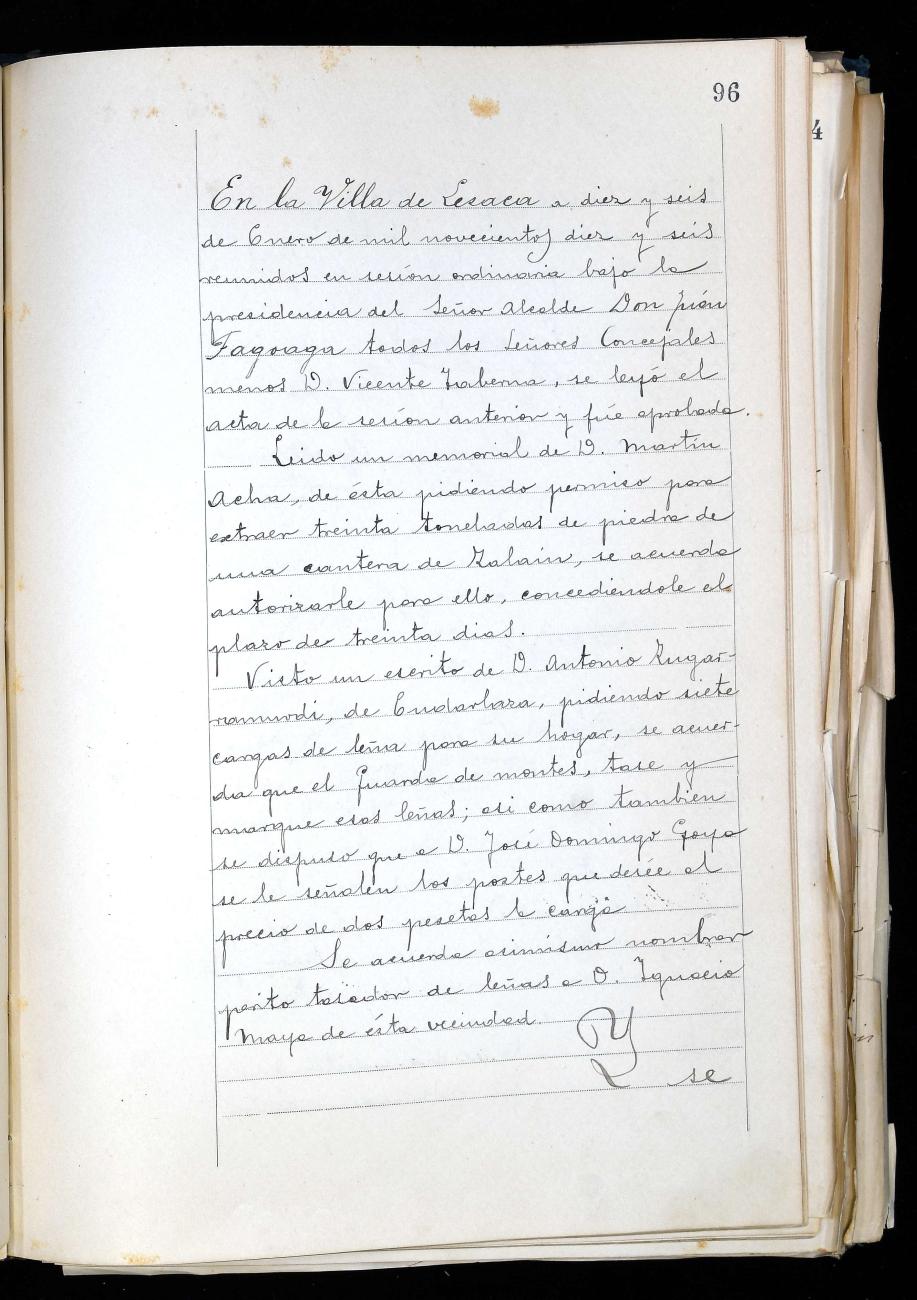 96
4
En la Villa de Lesaca a diez y seis
de Enero de mil novecientos diez y seis
reunidos en sesión ordinaria bajo la
presidencia del Señor Alcalde Don
Fagoaga todos los Señores Concejales
menos D. Vicente Taberna, se leyó el
acta de la sesión anterior y fúe aprobada.
Leido un memorial de D. Martín
Acha, de ésta pidiendo permiso para
extraer treinta toneladas de piedra de
una cantera de Zalain, se acuerda
autorizarle para ello, concediéndole el
plazo de treinta dias.
Visto un escrito de D. Antonio Zugar-
ramurdi, de Endarlaza, pidiendo siete
cargas de leña para su hogar, se acuer-
da que el Guarda de montes, tase y
marque esas leñas; asi como tambien
se dispuso que a D. José Domingo Goya
se le señalen los postes que desée al
precio de dos pesetas la carga
Se acuerda asimismo nombrar
perito tasador de leñas a D. Ignacio
Maya de ésta vecindad.
Y
se